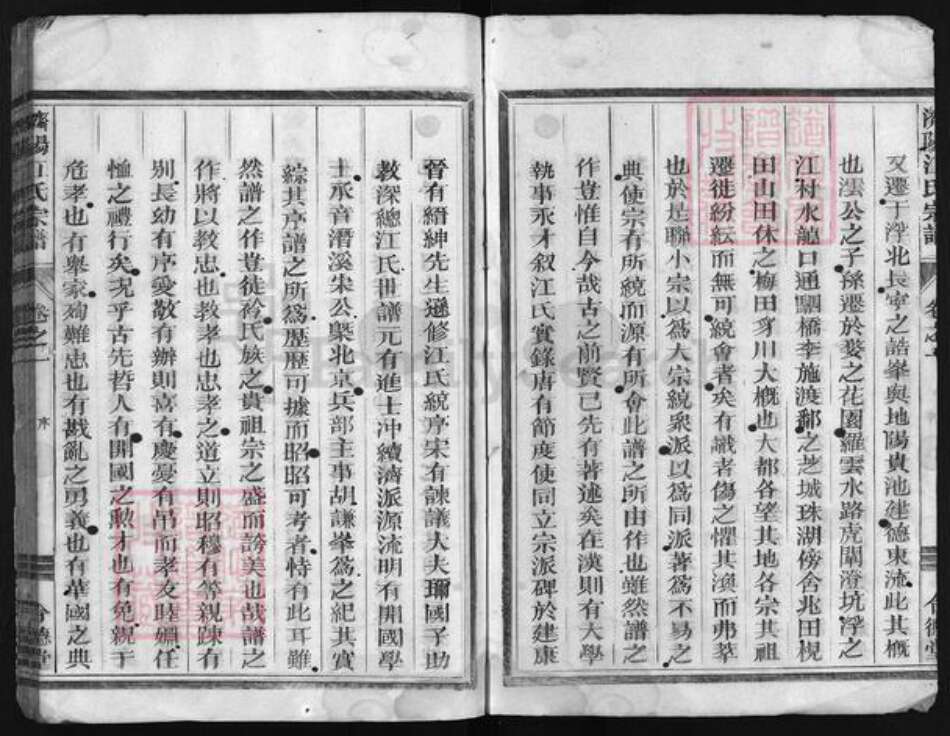 濟陽江氏宗譜
卷之一
又遷于浮北長寧之誥峯與地陽貴池建德東流此其概
也澐公之子孫遷於婺之花園羅雲水路虎閙澄坑浮之
江村水龍口通驷橋李施渡鄱之芝城珠湖傍舍兆田梘
田山田休之梅田芽川大概也大都各望其地各宗其祖
遷徙紛紜而無可統會者矣有識者傷之懼其渙而弗萃
也於是聯小宗以為大宗統衆派以為同派著為不易之
典使宗有所統而源有所會此譜之所由作也雖然譜之
作豈惟自今哉古之前賢已先有著述矣在漢則有大學
執事永才叙江氏實錄唐有節度使同立宗派碑於建康
晉有縉紳先生遜修江氏統序宋有諫議大夫瓓國子助
教深總江氏世譜元有進士冲續濟派源流明有開國學
士永音潛溪宋公槩北京兵部主事胡謙峯為之紀其實
綜其序譜之所為歷歷可據而昭昭可考者恃有此耳雖
然譜之作豈徒衿氏族之貴祖宗之盛而誇美也哉譜之
作將以教忠也教孝也忠孝之道立則昭穆有等親踈有
别長幼有序愛敬有辦則喜有慶憂有吊而孝友睦婣任
恤之禮行矣况乎古先哲人有開國之勲才也有免親于
危孝也有舉家殉難忠也有戡亂之勇義也有華國之典
濟陽江氏宗譜
卷之一
序
合德堂